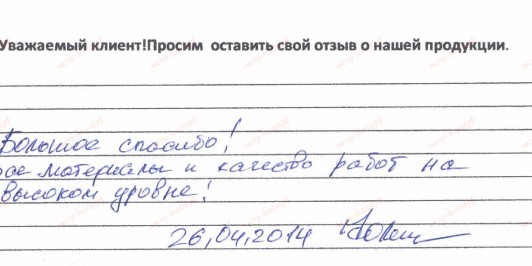 Уважаемый клиент!Просим оставить свой отзыв о нашей продукции.
Большое спасибо!
все материалы и качество работ на
высоком уровне!
26,04,2014